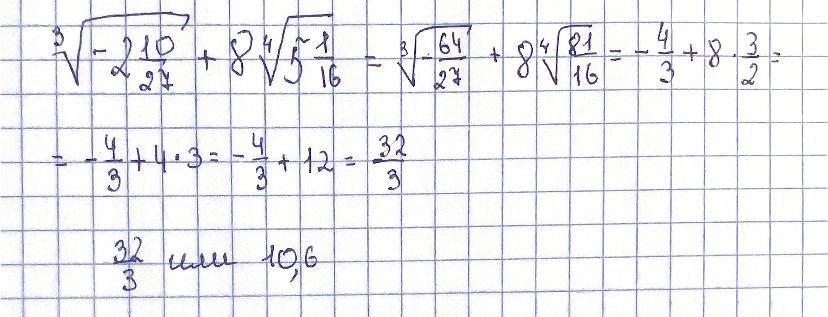 ∛(-2 10/27) + 8 ∜(5 1/16) = ∛(-64/27) + 8 ∜(81/16) = -4/3 + 8 · 3/2 =
= -4/3 + 4 · 3 = -4/3 + 12 = 32/3
32/3 или 10,6